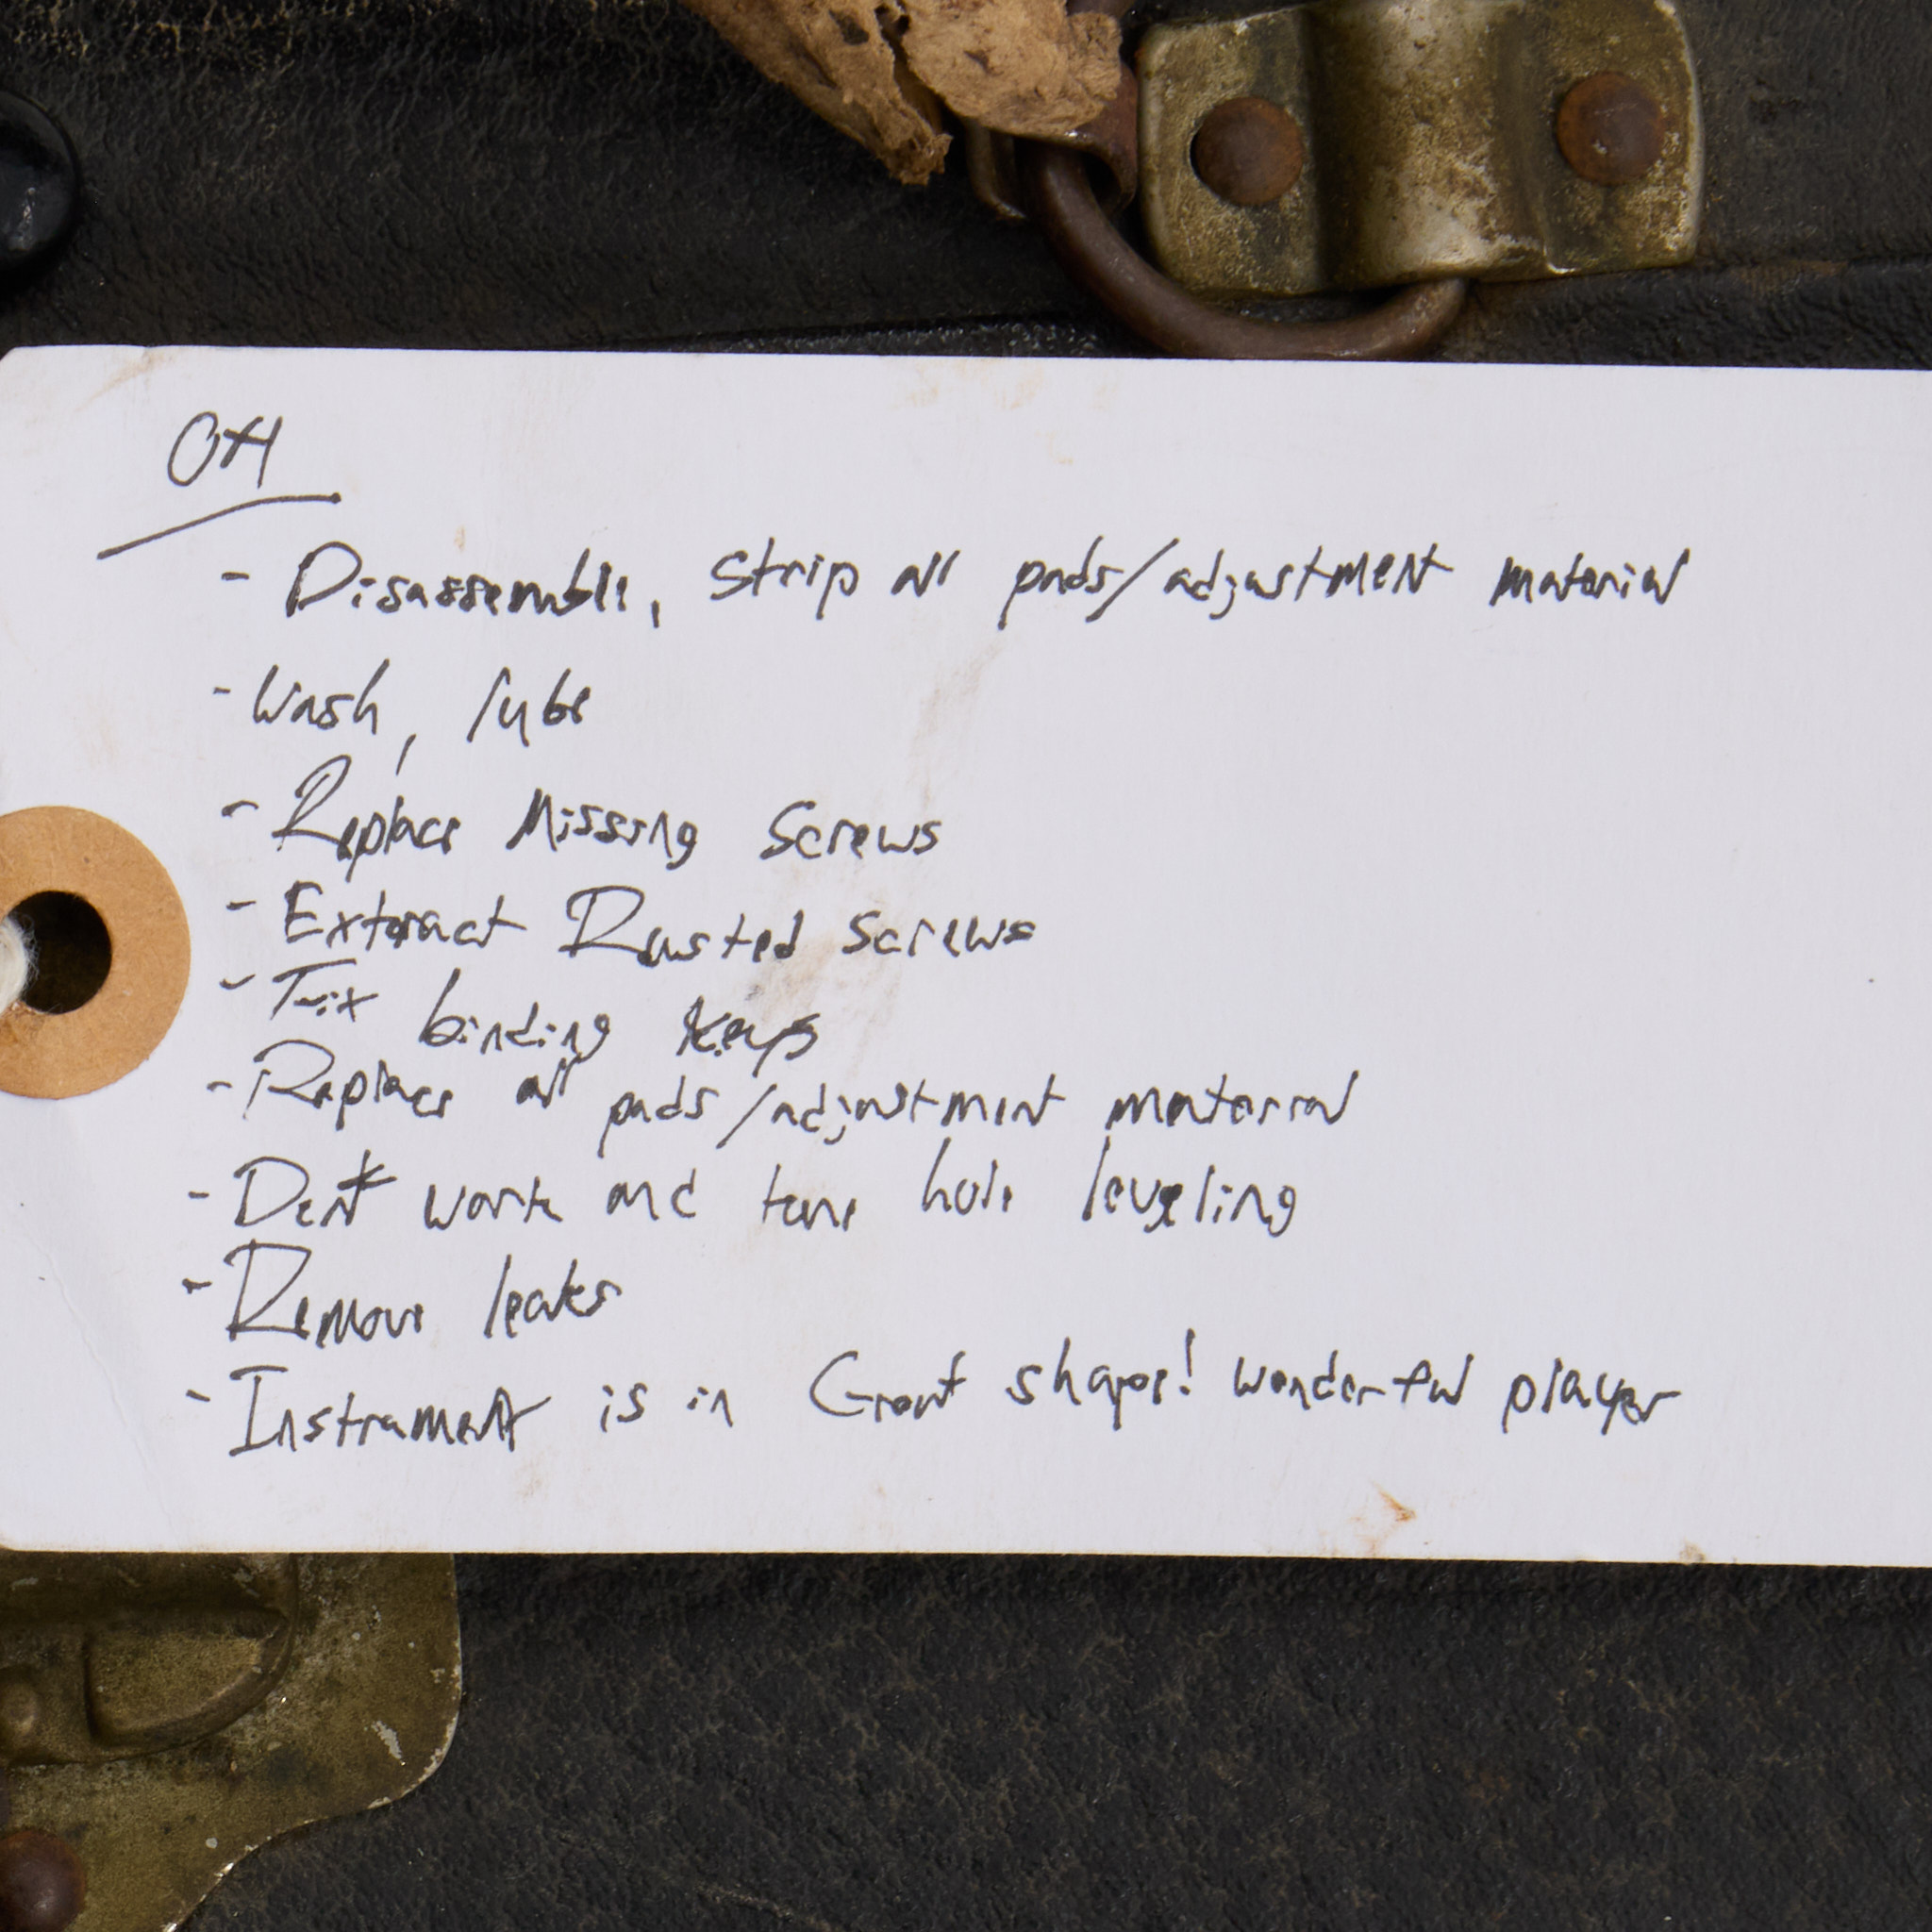 OH
- Disassemble, Strip all pads/adjustment material
- Wash, lube
- Replace Missing Screws
- Extract Rusted Screws
- Fix binding keys
- Replace all pads/adjustment material
- Dent work and tone hole leveling
- Remove leaks
- Instrument is in Great shape! wonderful player